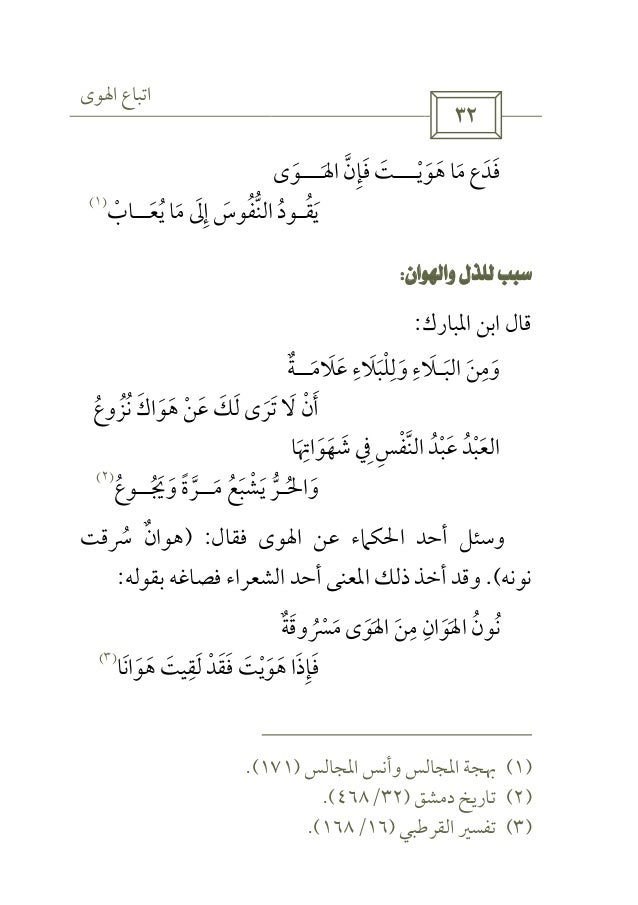 اتباع الهوى
٣٢
فَدَع مَا هَوَيْـــــتَ فَإِنَّ الهَـــــوَى
يَقُـــودُ النُّفُوسَ إِلَى مَا يُعَـــابْ(١)
سبب للذل والهوان:
قال ابن المبارك:
وَمِنَ البَـلَاءِ وَلِلْبَلَاءِ عَلَامَـــةٌ
أَنْ لَا تَرَى لَكَ عَنْ هَوَاكَ نُزُوعُ
العَبْدُ عَبْدُ النَّفْسِ فِي شَهَوَاتِهَا
وَالحُـــرُّ يَشْبَعُ مَـــرَّةً وَيَجُـــوعُ(٢)
وسئل أحد الحكماء عن الهوى فقال: (هوانٌ سُرقت
نونه). وقد أخذ ذلك المعنى أحد الشعراء فصاغه بقوله:
نُونُ الهَوَانِ مِنَ الهَوَى مَسْرُوقَةٌ
فَإِذَا هَوَيْتَ فَقَدْ لَقِيتَ هَوَانَا(٣)
(١) بهجة المجالس وأنس المجالس (١٧١).
(٢) تاريخ دمشق (٣٢/ ٤٦٨).
(٣) تفسير القرطبي (١٦/ ١٦٨).